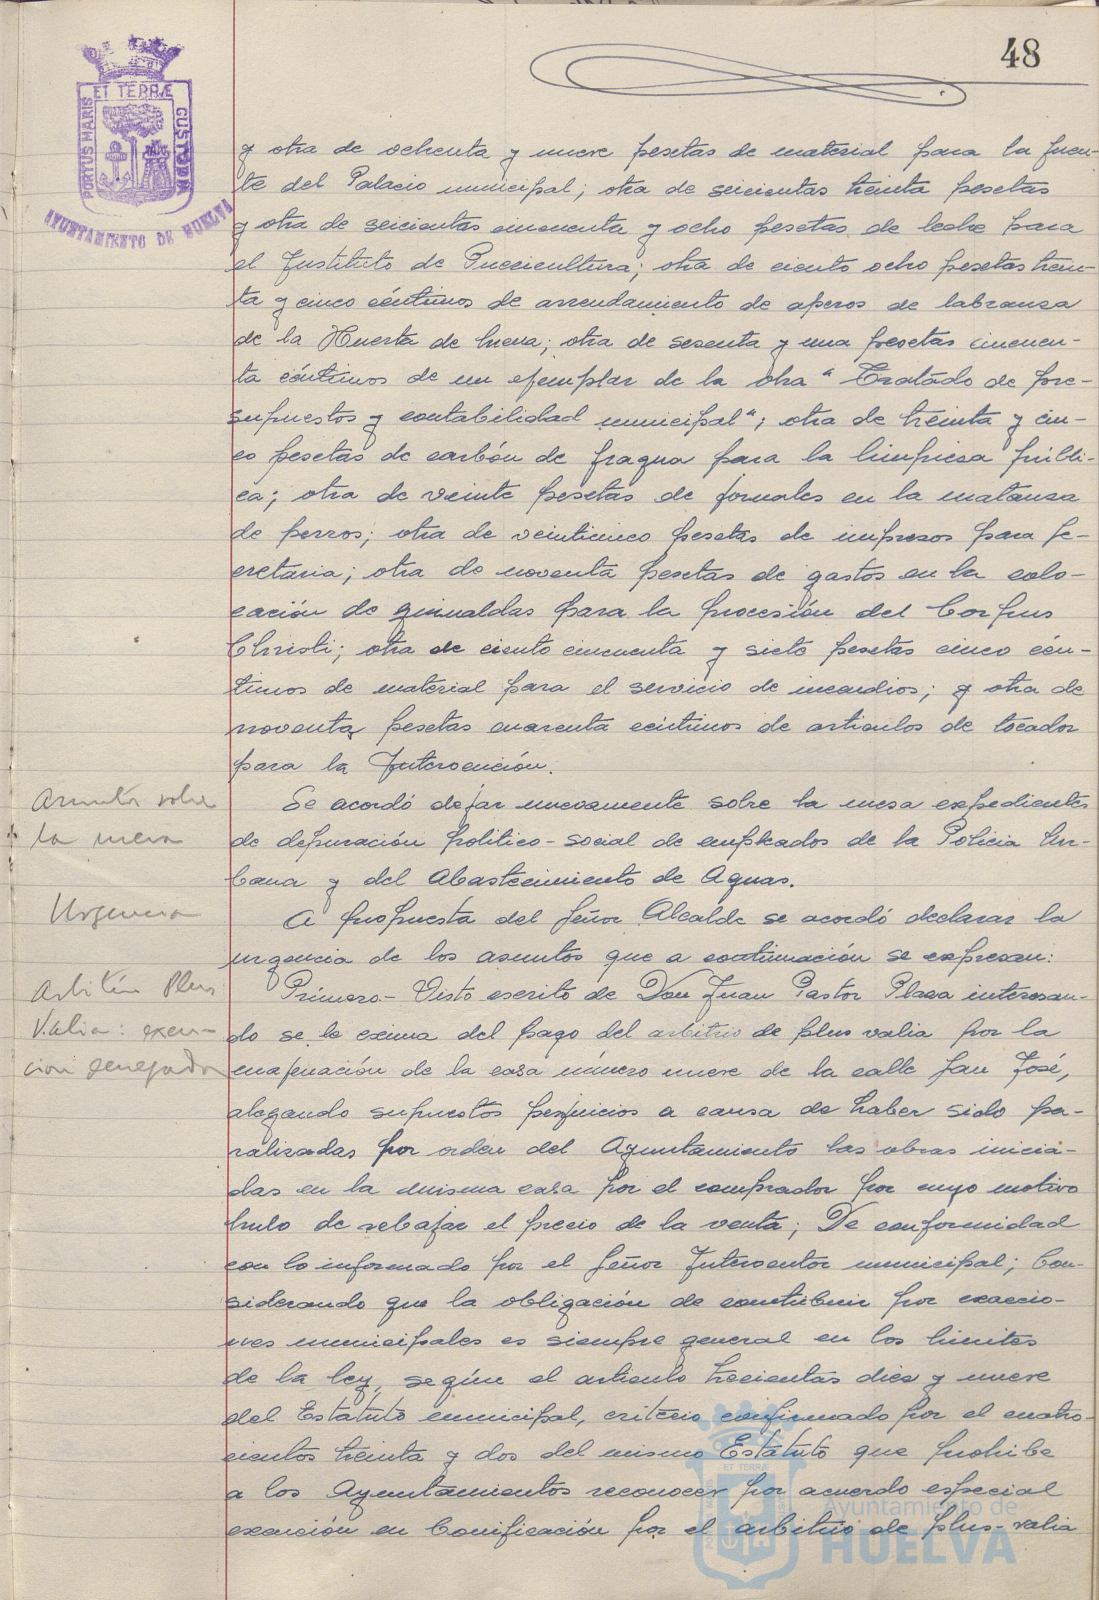 48
PORTUS MARIS ET TERRÆ CUSTODIA
AYUNTAMIENTO DE HUELVA
y otra de ochenta y nueve pesetas de material para la fuen-
te del Palacio municipal; otra de seicientas treinta pesetas
y otra de seicientas cincuenta y ocho pesetas de leche para
el Instituto de Puericultura; otra de ciento ocho pesetas trein-
ta y cinco céntimos de arrendamiento de aperos de labranza
de la Huerta de Mena; otra de sesenta y una pesetas cincuen-
ta céntimos de un ejemplar de la obra "Tratado de pre-
supuestos y contabilidad municipal"; otra de treinta y cin-
co pesetas de carbón de fragua para la limpieza públi-
ca; otra de veinte pesetas de jornales en la matanza
de perros; otra de veinticinco pesetas de impresos para Se-
cretaria; otra de noventa pesetas de gastos en la colo-
cación de guinaldas para la procesión del Corpus
Christi; otra de ciento cincuenta y siete pesetas cinco cén-
timos de material para el servicio de incendios; y otra de
noventa pesetas cuarenta céntimos de articulos de tocador
para la Intervención.
Asuntos sobre
la mesa
Se acordó dejar nuevamente sobre la mesa expedientes
de depuración politico-social de empleados de la Policia Ur-
bana y del Abastecimiento de Aguas.
Urgencia
A propuesta del Señor Alcalde se acordó declarar la
urgencia de los asuntos que a continuación se expresan:
Arbitrio Plus
Valia: exen-
cion denegada
Primero.- Visto escrito de Don Juan Pastor Plaza interesan-
do se le exima del pago del arbitrio de plus valia por la
enajenación de la casa número nueve de la calle San José,
alegando supuestos perjuicios a causa de haber sido pa-
ralizadas por orden del Ayuntamiento las obras inicia-
das en la misma casa por el comprador por cuyo motivo
hubo de rebajar el precio de la venta; De conformidad
con lo informado por el Señor Interventor municipal; Con-
siderando que la obligación de contribuir por exaccio-
nes municipales es siempre general en los limites
de la ley, según el articulo trecientas diez y nueve
del Estatuto municipal, criterio confirmado por el cuatro-
cientos treinta y dos del mismo Estatuto que prohibe
a los Ayuntamientos reconocer por acuerdo especial
exención en bonificación por el arbitrio de plus-valia
Ayuntamiento de
HUELVA